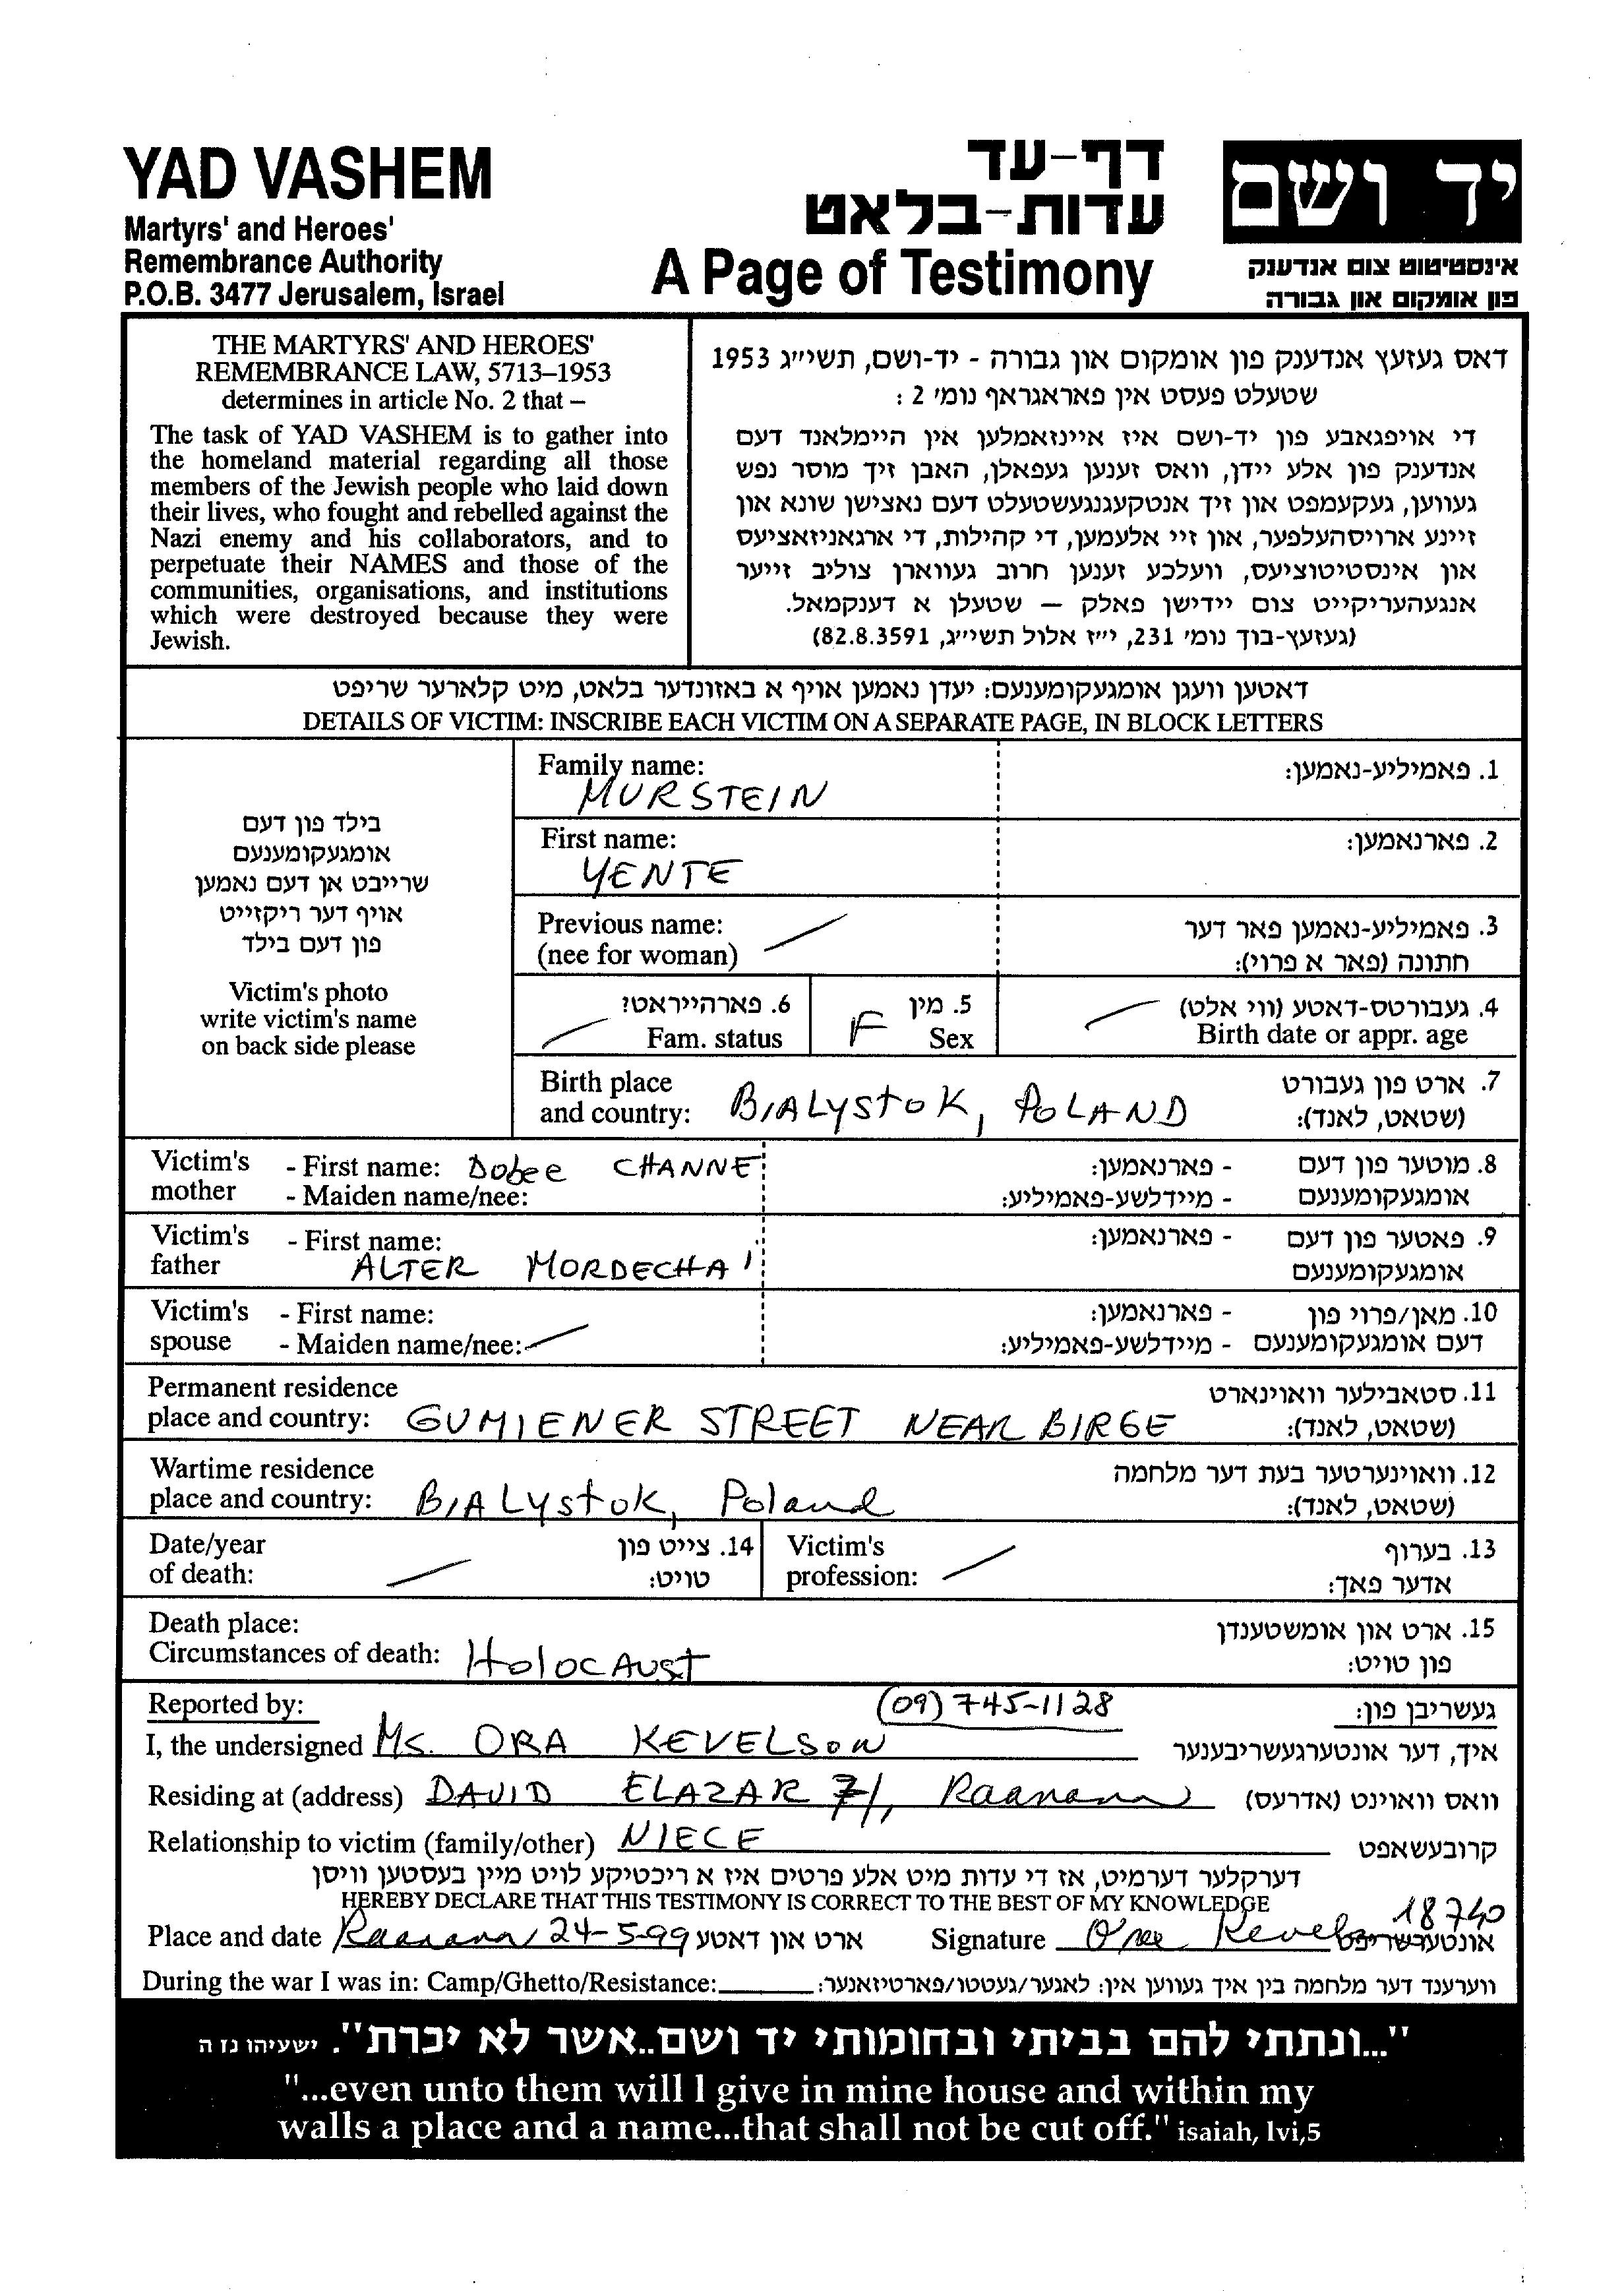 YAD VASHEM
Martyrs' and Heroes'
Remembrance Authority
P.O.B. 3477 Jerusalem, Israel
דף-עד
עדות-בלאט
A Page of Testimony
יד ושם
אינסטיטוט צום אנדענק
פון אומקום און גבורה
THE MARTYRS' AND HEROES'
REMEMBRANCE LAW, 5713–1953
determines in article No. 2 that –
The task of YAD VASHEM is to gather into
the homeland material regarding all those
members of the Jewish people who laid down
their lives, who fought and rebelled against the
Nazi enemy and his collaborators, and to
perpetuate their NAMES and those of the
communities, organisations, and institutions
which were destroyed because they were
Jewish.
דאס געזעץ אנדענק פון אומקום און גבורה - יד-ושם, תשי״ג 1953
שטעלט פעסט אין פאראגראף נומ׳ 2 :
די אויפגאבע פון יד-ושם איז איינזאמלען אין היימלאנד דעם
אנדענק פון אלע יידן, וואס זענען געפאלן, האבן זיך מוסר נפש
געווען, געקעמפט און זיך אנטקעגנגעשטעלט דעם נאצישן שונא און
זיינע ארויסהעלפער, און זיי אלעמען, די קהילות, די ארגאניזאציעס
און אינסטיטוציעס, וועלכע זענען חרוב געווארן צוליב זייער
אנגעהעריקייט צום יידישן פאלק – שטעלן א דענקמאל.
(געזעץ-בוך נומ׳ 231, י״ז אלול תשי״ג, 82.8.3591)
דאטען וועגן אומגעקומענעם: יעדן נאמען אויף א באזונדער בלאט, מיט קלארער שריפט
DETAILS OF VICTIM: INSCRIBE EACH VICTIM ON A SEPARATE PAGE, IN BLOCK LETTERS
בילד פון דעם
אומגעקומענעם
שרייבט אן דעם נאמען
אויף דער ריקזייט
פון דעם בילד
Victim's photo
write victim's name
on back side please
Family name: 1. פאמיליע-נאמען:
MURSTEIN
First name: 2. פארנאמען:
YENTE
Previous name: 3. פאמיליע-נאמען פאר דער
(nee for woman) חתונה (פאר א פרוי):
6. פארהייראט? 5. מין 4. געבורטס-דאטע (ווי אלט)
Fam. status F Sex Birth date or appr. age
Birth place 7. ארט פון געבורט
and country: BIALYSTOK, POLAND (שטאט, לאנד):
Victim's - First name: Dobee CHANNE 8. מוטער פון דעם - פארנאמען:
mother - Maiden name/nee: אומגעקומענעם - מיידלשע-פאמיליע:
Victim's - First name: 9. פאטער פון דעם - פארנאמען:
father ALTER MORDECHAI אומגעקומענעם
Victim's - First name: 10. מאן/פרוי פון - פארנאמען:
spouse - Maiden name/nee: דעם אומגעקומענעם - מיידלשע-פאמיליע:
Permanent residence 11. סטאבילער וואוינארט
place and country: GUMIENER STREET NEAR BIRGE (שטאט, לאנד):
Wartime residence 12. וואוינערטער בעת דער מלחמה
place and country: BIALYSTOK, Poland (שטאט, לאנד):
Date/year 14. צייט פון Victim's 13. בערוף
of death: טויט: profession: אדער פאך:
Death place: 15. ארט און אומשטענדן
Circumstances of death: HOLOCAUST פון טויט:
Reported by: (09) 745-1128 געשריבן פון:
I, the undersigned Ms. ORA KEVELSON איך, דער אונטערגעשריבענער
Residing at (address) DAVID ELAZAR 7/, Raanana וואס וואוינט (אדרעס)
Relationship to victim (family/other) NIECE קרובעשאפט
דערקלער דערמיט, אז די עדות מיט אלע פרטים איז א ריכטיקע לויט מיין בעסטען וויסן
HEREBY DECLARE THAT THIS TESTIMONY IS CORRECT TO THE BEST OF MY KNOWLEDGE
18740
Place and date Raanana 24-5-99 ארט און דאטע Signature Ora Kevelson אונטערשריפט
During the war I was in: Camp/Ghetto/Resistance: ווערענד דער מלחמה בין איך געווען אין: לאגער/געטטו/פארטיזאנער:
"...ונתתי להם בביתי ובחומותי יד ושם..אשר לא יכרת". ישעיהו נז ה
"...even unto them will I give in mine house and within my
walls a place and a name...that shall not be cut off." isaiah, lvi,5